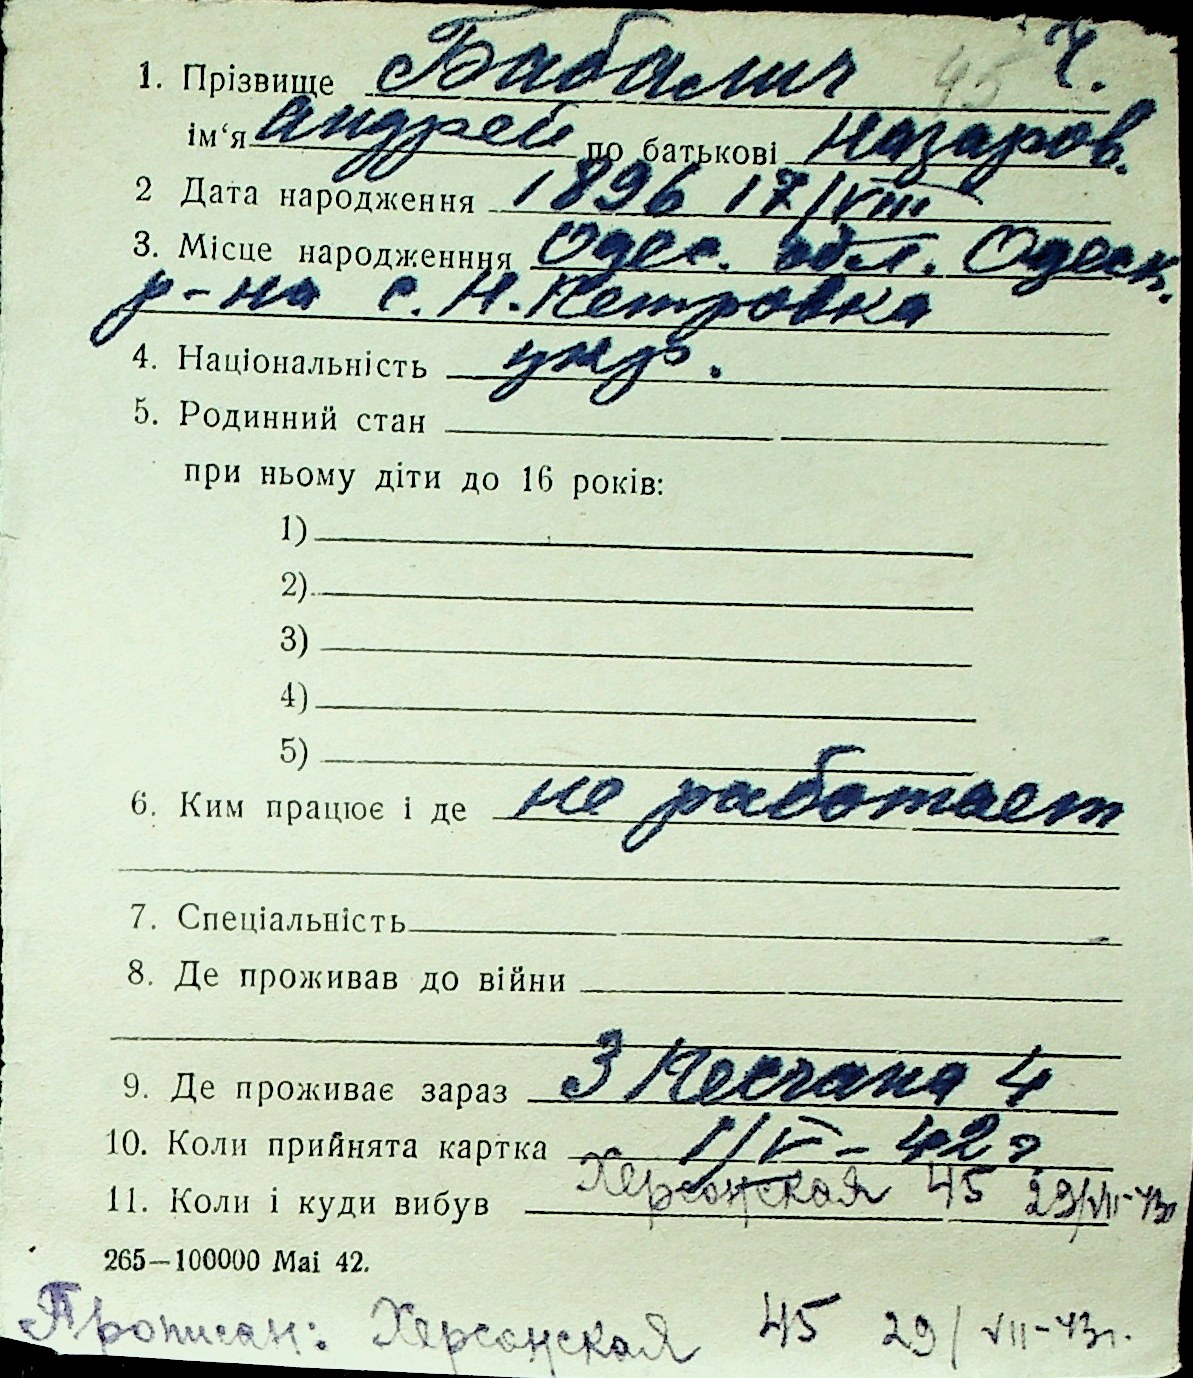 45 Ч.
1. Прізвище Бабалич
ім‘я Андрей по батькові Назаров.
2 Дата народження 1896 17/VIII
3. Місце народженння Одес. обл. Одеск.
р-на с. Н. Петровка
4. Національність укр.
5. Родинний стан
при ньому діти до 16 років:
1)
2)
3)
4)
5)
6. Ким працює і де не работает
7. Спеціальність
8. Де проживав до війни
9. Де проживає зараз 3 Песчана 4
10. Коли прийнята картка 1/V - 42 г.
11. Коли і куди вибув Херсонская 45 29/VII-43г
265—100000 Mai 42.
Прописан: Херсонская 45 29/VII-43г.